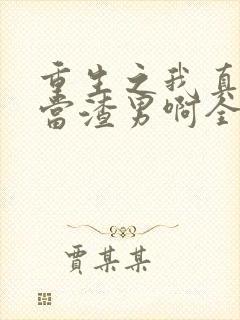 重生之我真
当渣男啊全
贾某某